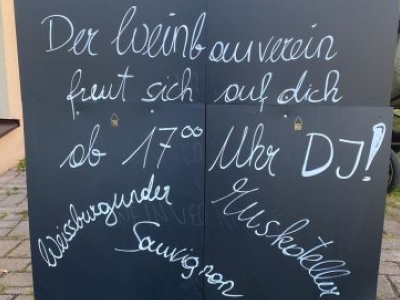 Der Weinbauverein
freut sich auf dich
ab 17⁰⁰ Uhr DJ!
Weissburgunder
Sauvignon
Muskateller